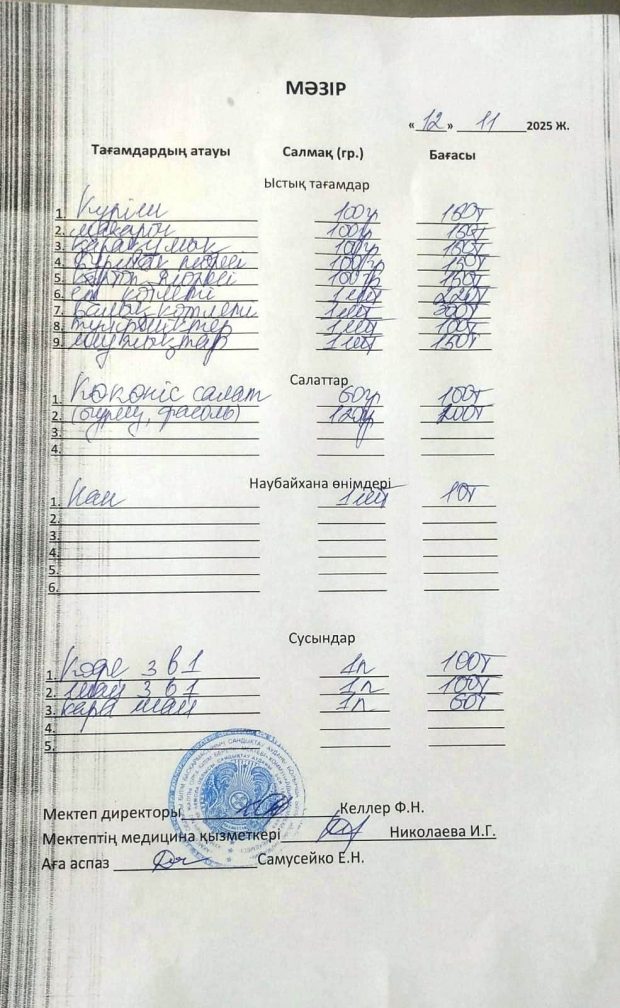 МӘЗІР
« 12 » 11 2025 Ж.
Тағамдардың атауы Салмақ (гр.) Бағасы
Ыстық тағамдар
1. Күріш 100гр 150т
2. макарон 100гр 150т
3. қарақұмық 100гр 150т
4. бұршақ пюресі 100гр 150т
5. картоп пюресі 100гр 150т
6. ет котлеті 1 шт 220т
7. балық котлеті 1шт 300т
8. түйіршіктер 1 шт 100т
9. шұжықтар 1 шт 150т
Салаттар
1. Көкөніс салат 60гр 100т
2. (бүрең, фасоль) 120гр 200т
3.
4.
Наубайхана өнімдері
1. Нан 1 шт 10т
2.
3.
4.
5.
6.
Сусындар
1. Кофе 3 в 1 1п 100т
2. шай 3 в 1 1п 100т
3. қара шай 1п 60т
4.
5.
Мектеп директоры Келлер Ф.Н.
Мектептің медицина қызметкері Николаева И.Г.
Аға аспаз Самусейко Е.Н.